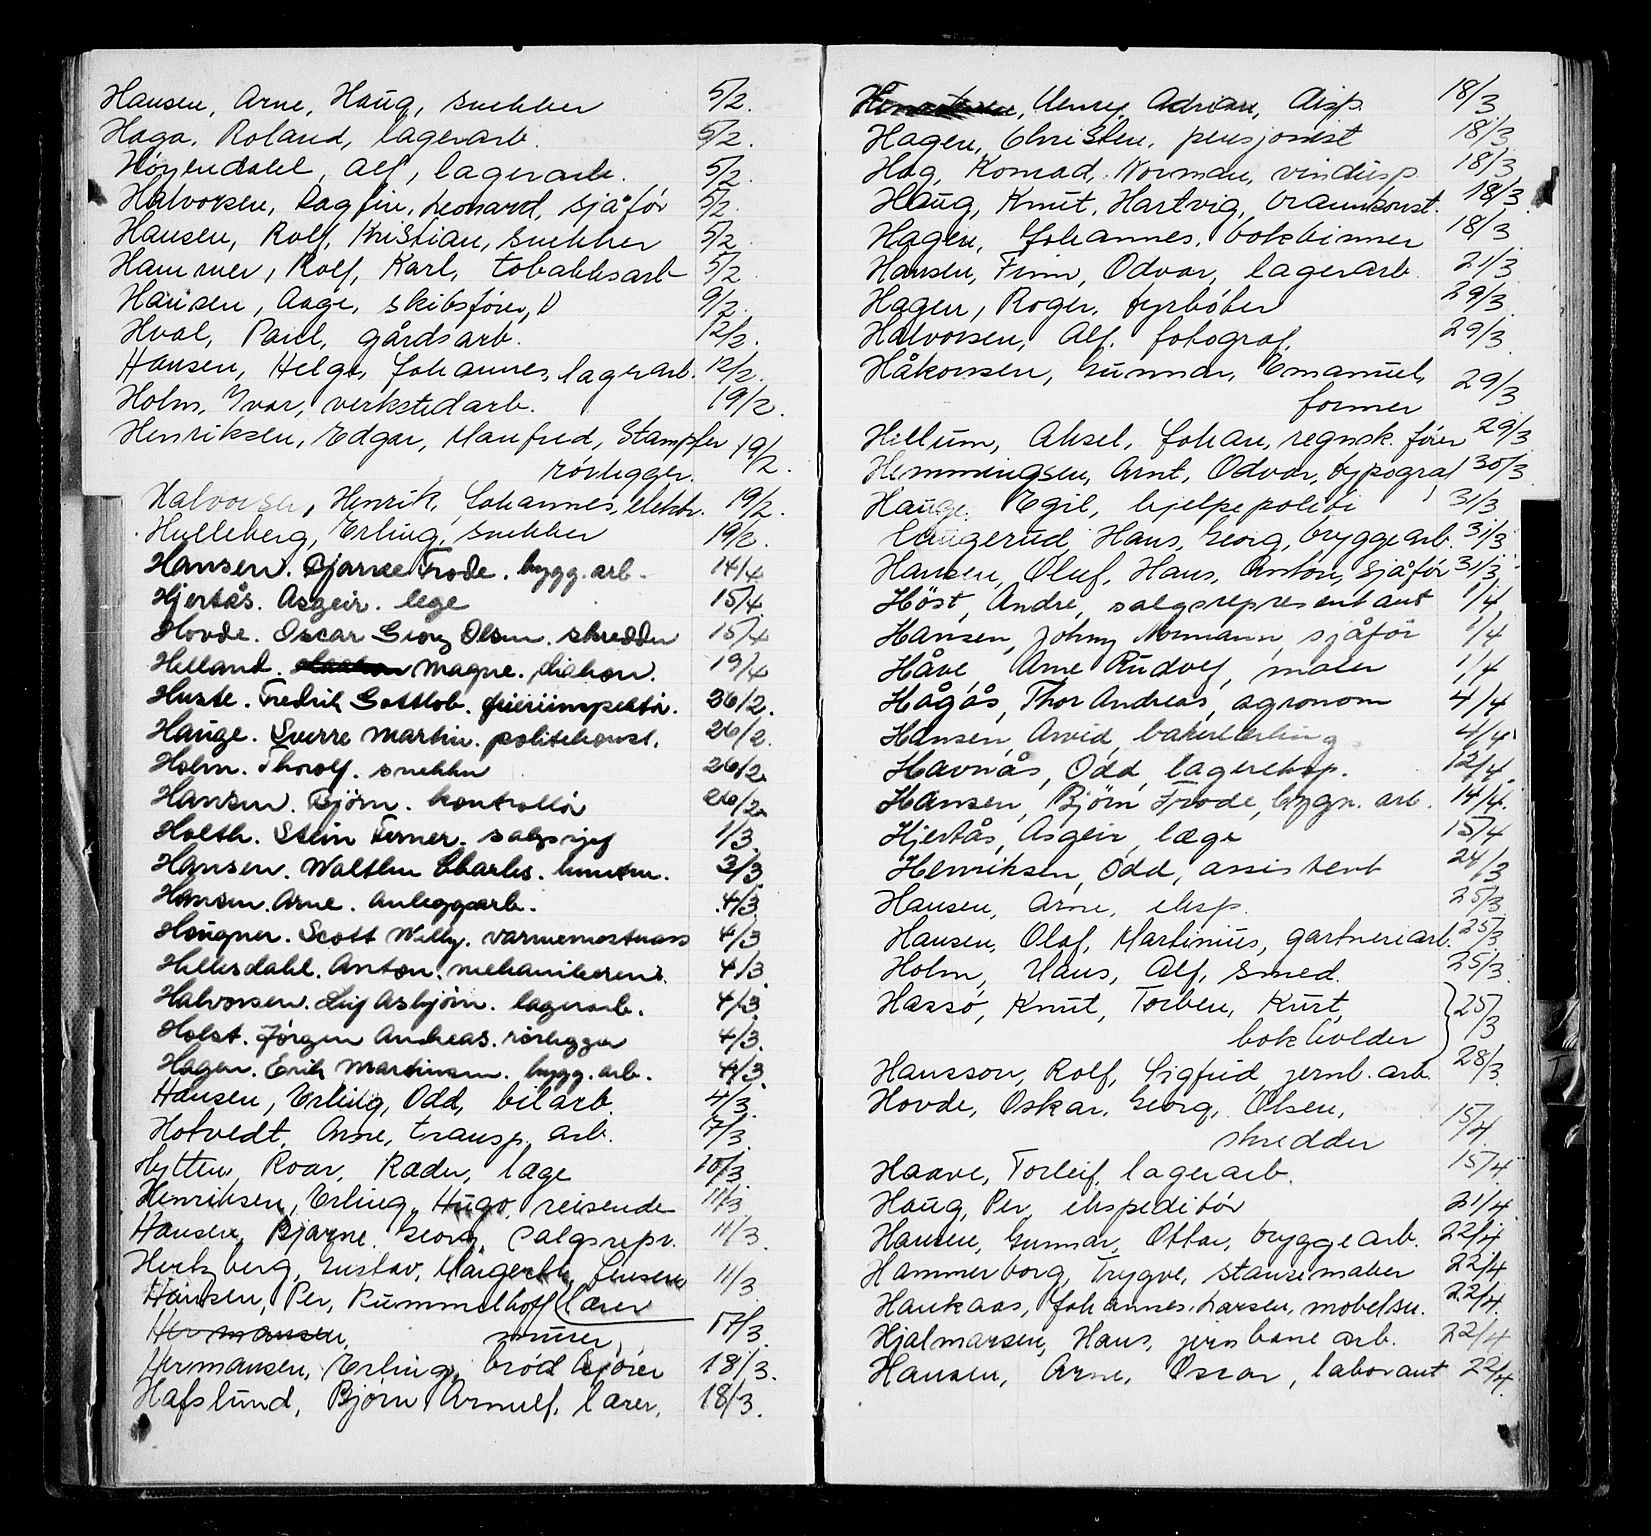 Hansen, Arne, Haug, snekker 5/2.
Haga, Roland, lagerarb. 5/2.
Høyendahl, Alf, lagerarb. 5/2.
Halvorsen, Dagfin, Leonard, sjåfør 5/2.
Hansen, Rolf, Kristian, snekker 5/2
Hammer, Rolf, Karl, tobakksarb 5/2.
Hansen, Aage, skibsfører, 9/2.
Hval, Paul, gårdsarb. 12/2.
Hansen, Helge, Johannes, lagerarb. 12/2.
Holm, Ivar, verkstedarb. 19/2.
Henriksen, Edgar, Manfred, Stampfer 19/2.
rørlegger.
Halvorsen, Henrik, Johannes, elektr. 19/2.
Hulleberg, Erling, snekker 19/2.
Hansen. Bjarne Frode. bygg. arb. 14/4
Hjertås. Asgeir. lege 15/4
Hovde. Oscar Georg Olsen. skredder 15/4
Helland. Magne. diakon. 19/4
Huste. Fredrik Gottlob. 26/2.
Hauge. Sverre Martin. politikonst. 26/2.
Holm. Thorolf. snekker 26/2.
Hansen. Bjørn. kontrollør 26/2.
Holth. Stein Ferner. salgssjef 1/3.
Hansen. Walther Charles. 3/3
Hansen. Arne. Anleggsarb. 4/3
Haugner. Scott Willy. varmemesterass 4/3
Hillersdahl. Anton. mekaniker 4/3
Halvorsen. Leif Asbjørn. lagerarb. 4/3.
Holst. Jørgen Andreas. rørlegger 4/3.
Hagen. Erik Martinsen. bygg. arb. 4/3.
Hansen, Erling, Odd, bilarb. 4/3.
Hotvedt, Arne, transp. arb. 7/3.
Hytten, Roar, Ræder, læge 10/3.
Henriksen, Erling, Hugo, reisende 11/3
Hansen, Bjarne, Georg, salgsrepr. 11/3.
Hertzberg, Gustav, Margreth, Jensen 11/3.
Hansen, Per, Rummelhoff, lærer
Hermansen, murer, 17/3.
Hermansen, Erling, brødkjører 18/3.
Hafslund, Bjørn Arnulf, lærer, 18/3.
Henry Adrian, disp. 18/3
Hagen, Christen, pensjonist 18/3
Hag, Konrad, Norman, vindusp. 18/3
Haug, Knut, Hartvig, brannkonst. 18/3.
Hagen, Johannes, bokbinner 18/3
Hansen, Finn, Odvar, lagerarb. 21/3
Hagen, Roger, fyrbøter 29/3.
Halvorsen, Alf, fotograf, 29/3.
Håkonsen, Gunnar, Emanuel, 29/3
former
Hellum, Aksel, Johan, regnsk. fører 29/3
Hemmingsen, Arnt, Odvar, typograf 30/3
Hauge, Egil, hjelpepoliti 31/3
Haugerud, Hans, Georg, bryggearb. 31/3
Hansen, Oluf, Hans, Anton, sjåfør 31/3
Höst, Andre, salgsrepresentant 1/4
Hansen, Johny Normann, sjåfør 1/4
Håve, Arne Rudolf, maler 1/4
Hågås, Thor Andreas, agronom 4/4
Hansen, Arvid, bakerlærling 4/4
Havnås, Odd, lagereksp. 12/4.
Hansen, Bjørn Frode, bygn. arb. 14/4.
Hjertås, Asgeir, læge 15/4
Henriksen, Odd, assistent 24/3
Hansen, Arne, eksp. 25/3
Hansen, Olaf, Martinius, gartneriarb. 25/3.
Holm, Hans, Alf, smed. 25/3
Hassø, Knut, Torben, Kurt, 25/3
bokholder
Hansson, Rolf, Sigfrid, jernb. arb. 28/3.
Hovde, Oskar, Georg, Olsen, 15/4.
skredder
Haave, Torleif, lagerarb. 15/4.
Haug, Per, ekspeditør 21/4.
Hansen, Gunnar, Ottar, bryggearb. 22/4
Hammerborg, Trygve, stansemaker 22/4
Haukaas, Johannes, Larsen, møbelsn. 22/4.
Hjalmarsen, Hans, jernbanearb. 22/4
Hansen, Arne, Oscar, laborant 22/4.